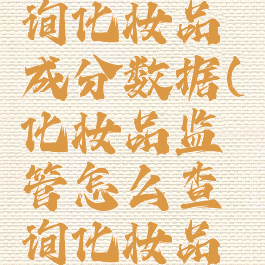 询化妆品
成分数据(
化妆品监
管怎么查
询化妆品